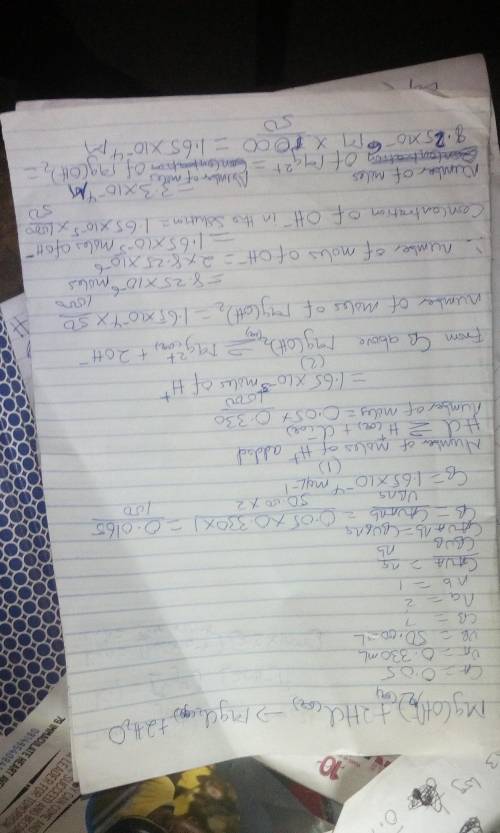 Mg(OH)2(aq) + 2HCl(aq) → MgCl2(aq) + 2H2O
CA = 0.05
VA = 0.330mL
VB = 50.00mL
CB = ?
na = 2
nb = 1
CAVA = na
CBVB nb
CAVAnb = CBVBna
CB = CAVAnb = 0.05 x 0.330 x 1 = 0.0165
VBna 50.00 x 2 100
CB = 1.65 x 10-4 mol L-1
(1)
Number of moles of H+ added
HCl ⇌ H+(aq) + Cl-(aq)
Number of moles = 0.05 x 0.330
1000
= 1.65 x 10-5 moles of H+
(2)
From CB above Mg(OH)2(aq) ⇌ Mg2+(aq) + 2OH-
Number of moles of Mg(OH)2 = 1.65 x 10-4 x 50
1000
= 8.25 x 10-6 moles
∴ Number of moles of OH- = 2 x 8.25 x 10-6
= 1.65 x 10-5 moles of OH-
Concentration of OH- in the solution = 1.65 x 10-5 x 1000
50
= 3.3 x 10-4 M
Number of moles of Mg2+ = Number of moles of Mg(OH)2 =
8.25 x 10-6 M x 1000 = 1.65 x 10-4 M
50